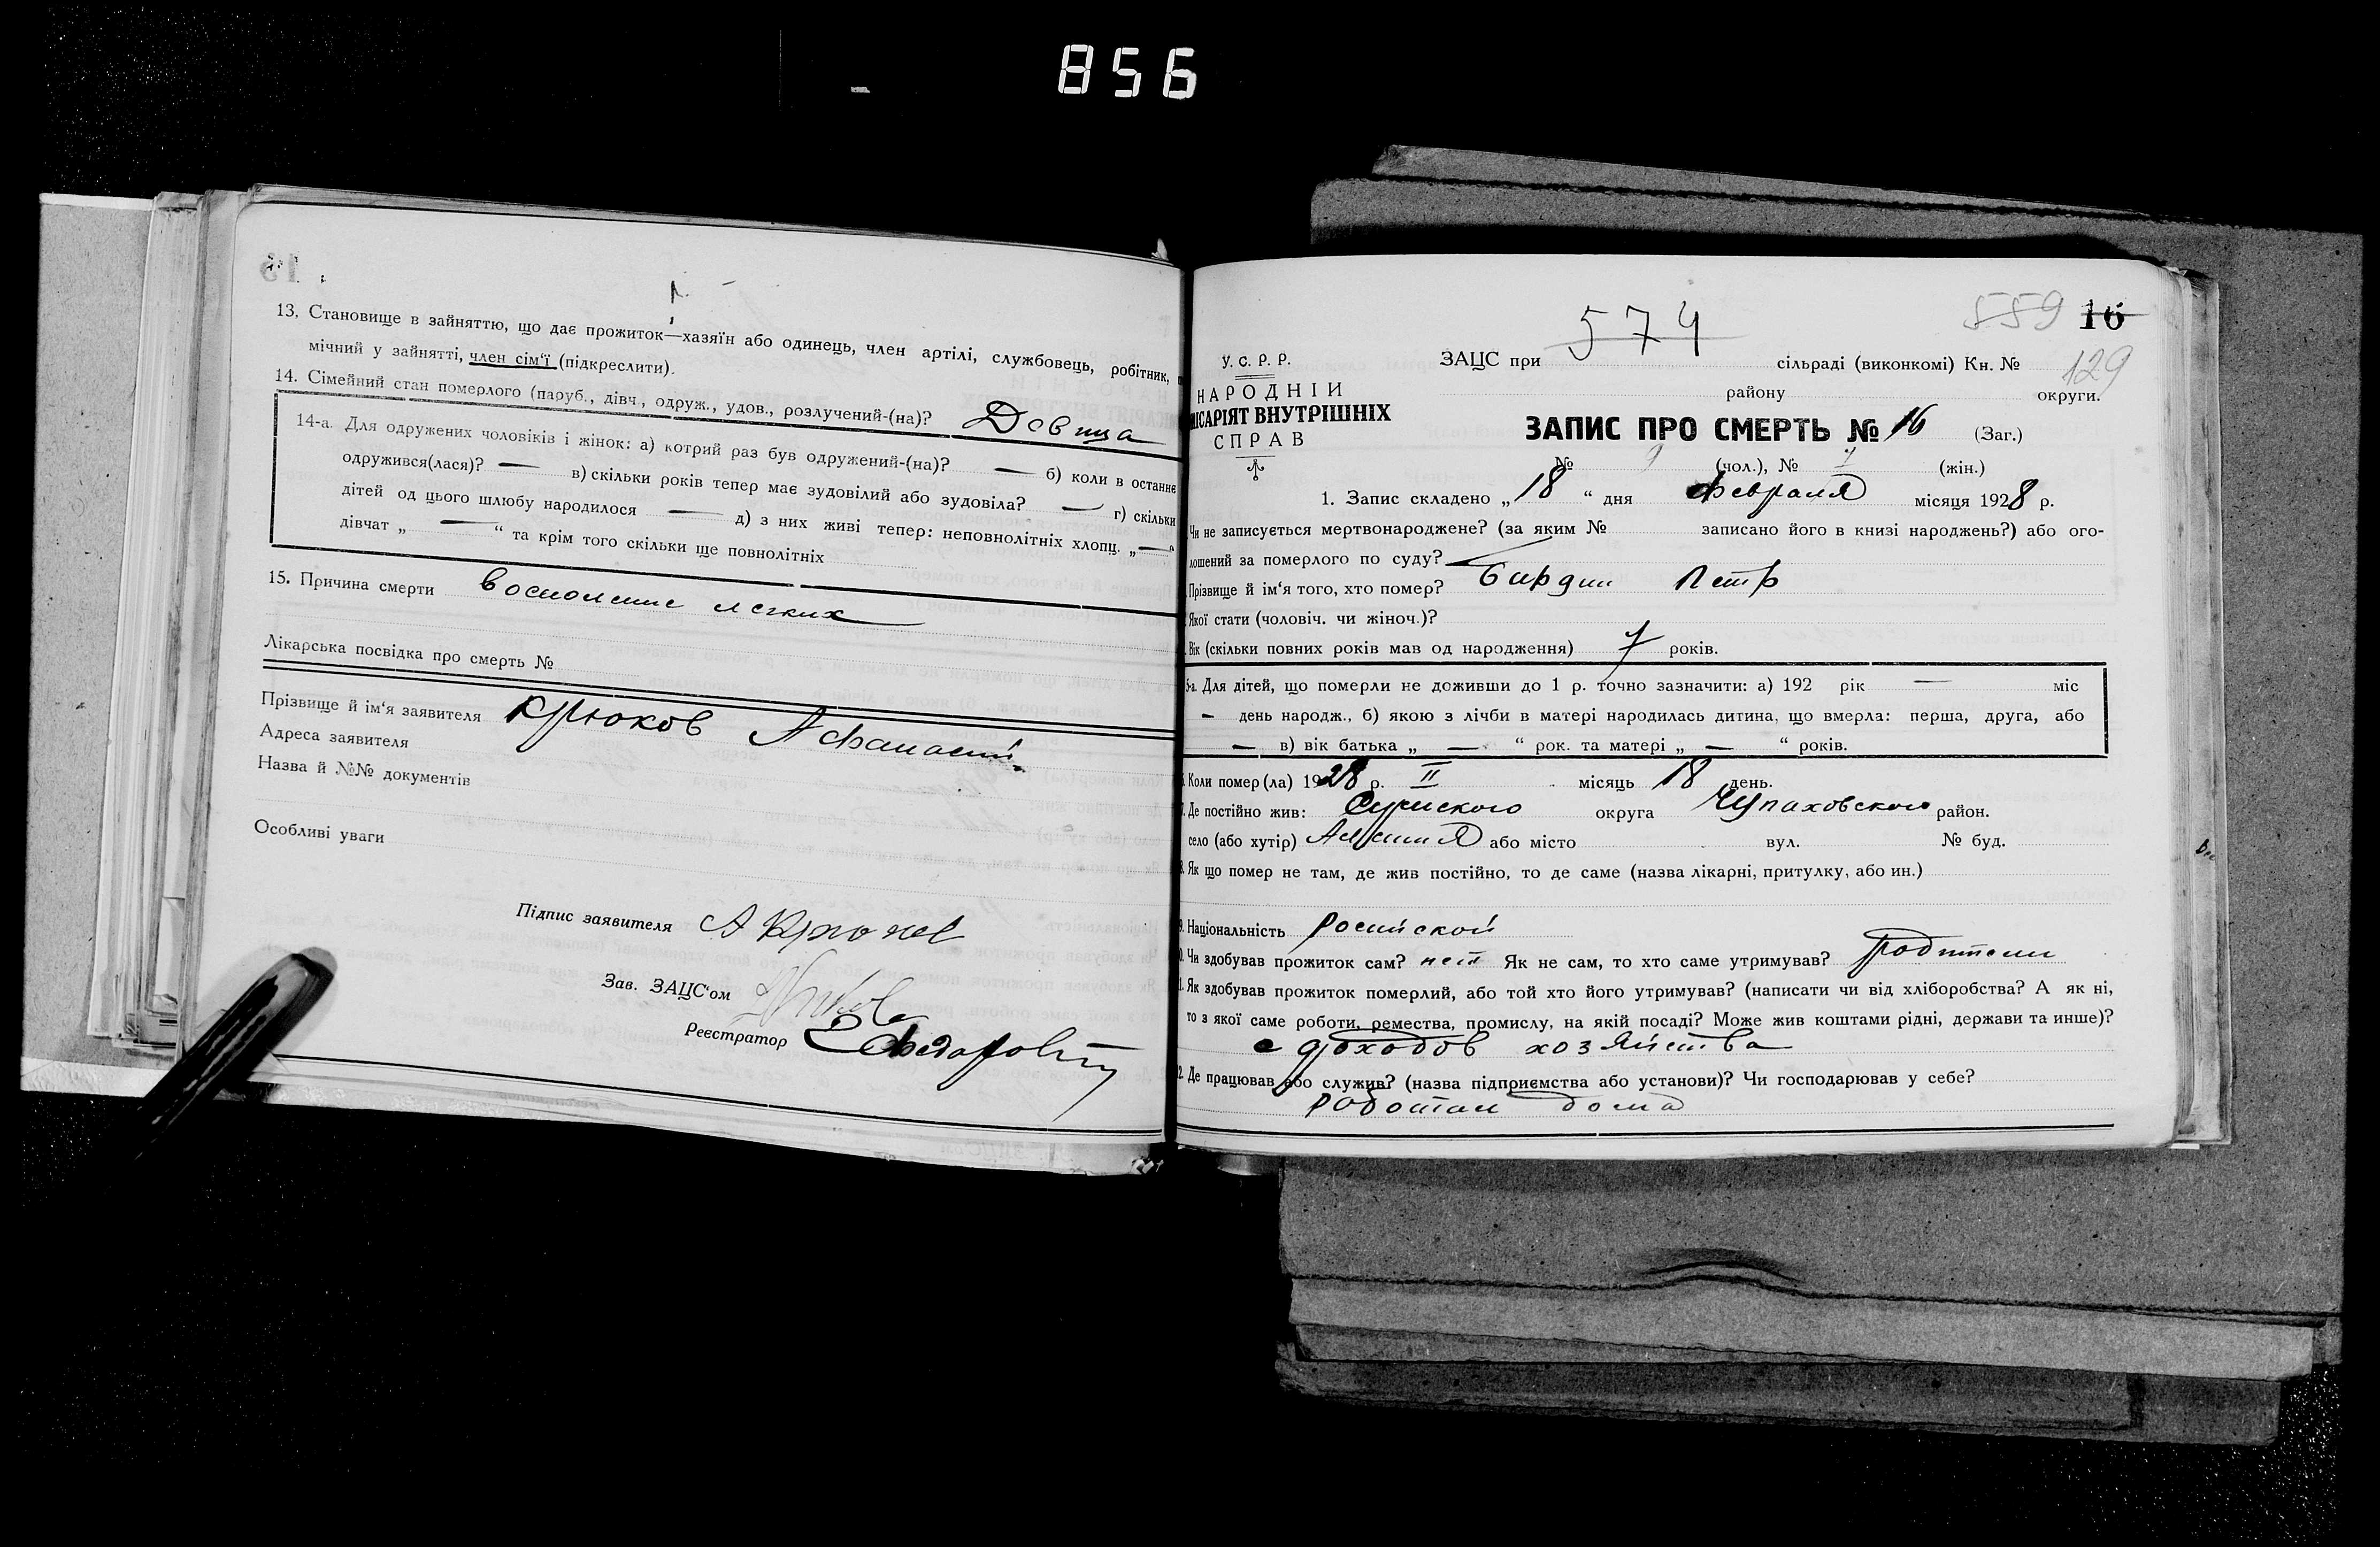 856
13. Становище в зайняттю, що дає прожиток—хазяїн або одинець, член артілі, службовець, робітник,
мічний у зайнятті, член сім'ї (підкреслити).
14. Сімейний стан померлого (паруб., дівч., одруж., удов., розлучений-(на)? Девица
14-а. Для одружених чоловіків і жінок: а) котрий раз був одружений-(на)? — б) коли в останнє
одружився(лася)? — в) скільки років тепер має зудовілий або зудовіла? — г) скільки
дітей од цього шлюбу народилося — д) з них живі тепер: неповнолітніх хлопц. „—“
дівчат „ — “ та крім того скільки ще повнолітніх
15. Причина смерти восполение легких
Лікарська посвідка про смерть №
Прізвище й ім'я заявителя Крюков Афанасий
Адреса заявителя
Назва й №№ документів
Особливі уваги
Підпис заявителя А Крюков
Зав. ЗАЦС'ом
Реєстратор
574
559 16
У. С. Р. Р.
ЗАЦС при сільраді (виконкомі) Кн. № 129
НАРОДНІЙ
району округи.
ІСАРІЯТ ВНУТРІШНІХ
СПРАВ
ЗАПИС ПРО СМЕРТЬ № 16 (Заг.)
№ 9 (чол.), № (жін.)
1. Запис складено „18“ дня Февраля місяця 1928 р.
Чи не записується мертвонароджене? (за яким № записано його в книзі народжень?) або ого-
лошений за померлого по суду? —
Прізвище й ім'я того, хто помер? Бардин Петр
Якої стати (чоловіч. чи жіноч.)?
Вік (скільки повних років мав од народження) 7 років.
5-а. Для дітей, що померли не доживши до 1 р. точно зазначити: а) 192 рік — міс
— день народж., б) якою з лічби в матері народилась дитина, що вмерла: перша, друга, або
— в) вік батька „ — “ рок. та матері „ — “ років.
Коли помер(ла) 1928 р. II місяць 18 день.
Де постійно жив: Сумского округа Чупаховского район.
село (або хутір) або місто вул. № буд.
8. Як що помер не там, де жив постійно, то де саме (назва лікарні, притулку, або ин.)
9. Національність Росийской
0. Чи здобував прожиток сам? нет Як не сам, то хто саме утримував? родители
1. Як здобував прожиток померлий, або той хто його утримував? (написати чи від хліборобства? А як ні,
то з якої саме роботи, ремества, промислу, на якій посаді? Може жив коштами рідні, держави та инше)?
с доходов хозяйства
2. Де працював або служив? (назва підприємства або установи)? Чи господарював у себе?
работал дома